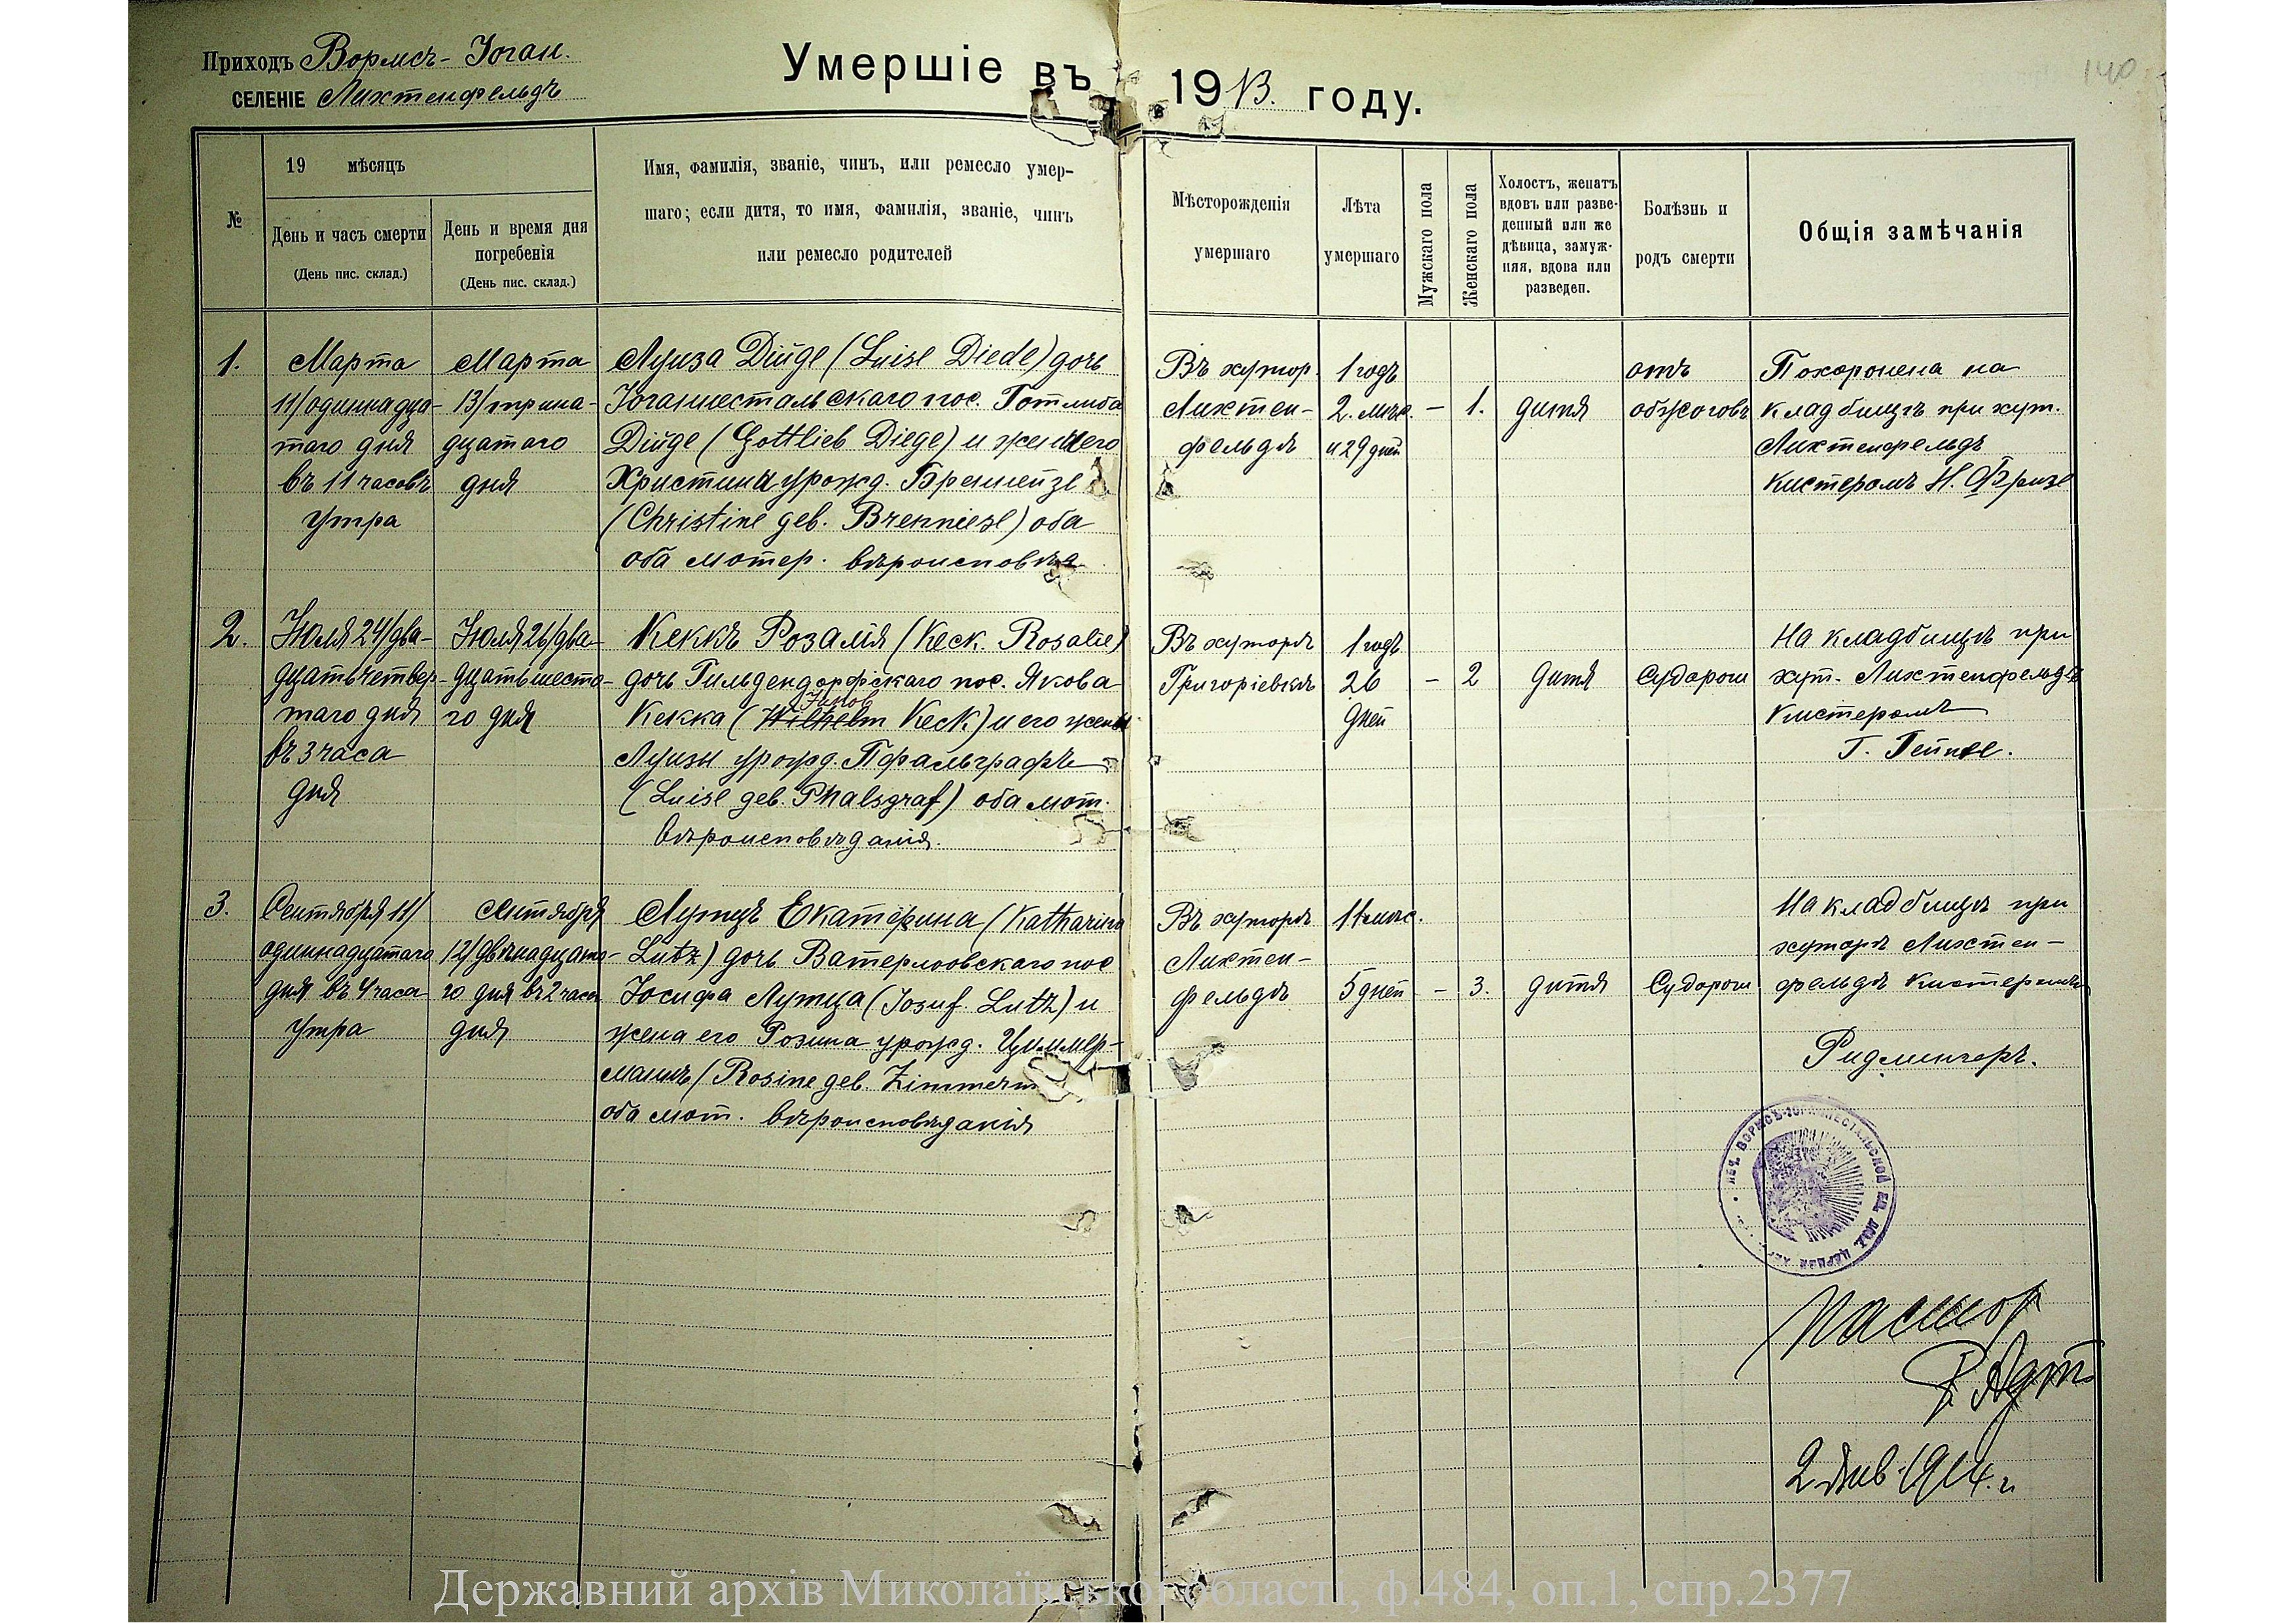 Приходъ Вормсъ-Іоган.
СЕЛЕНІЕ Лихтенфельдъ
Умершіе въ 1913. году.
140
№
19 мѣсяцъ
День и часъ смерти
(День пис. склад.)
День и время дня
погребенія
(День пис. склад.)
Имя, фамилія, званіе, чинъ, или ремесло умер-
шаго; если дитя, то имя, фамилія, званіе, чинъ
или ремесло родителей
Мѣсторожденія
умершаго
Лѣта
умершаго
Мужскаго пола
Женскаго пола
Холостъ, женатъ
вдовъ или разве-
денный или же
дѣвица, замуж-
няя, вдова или
разведен.
Болѣзнь и
родъ смерти
Общія замѣчанія
1.
Марта
11/одиннадца-
таго дня
въ 11 часовъ
утра
Марта
13/трина-
дцатаго
дня
Луиза Дійде (Luise Diede) дочь
Іоганнестальскаго пос. Готлиба
Дійде (Gottlieb Diege) и жены его
Христины урожд. Бреннейзе
(Christine geb. Brenneise) оба
оба лютер. вѣроисповѣд
Въ хутор.
Лихтен-
фельдѣ
1 годъ
2. мѣс.
и 29 дней
–
1.
дитя
отъ
обжоговъ
Похоронена на
кладбищѣ при хут.
Лихтенфельдъ
кистеромъ Н. Фризе
2.
Июля 24/два-
дцатьчетвер-
таго дня
въ 3 часа
дня
Июля 26/два-
дцатьшеста-
го дня
Кеккъ Розалія (Keck. Rosalie)
дочь Гильдендорфскаго пос. Якова
Кекка (Wilhelm Keck) и его жены
Луизы урожд. Пфальграфъ
(Luise geb. Phalsgraf) оба лют.
вѣроисповѣданія.
Въ хуторѣ
Григоріевкѣ
1 годъ
26
дней
–
2
дитя
Судороги
На кладбищѣ при
хут. Лихтенфельдѣ
кистеромъ
Г. Гейне.
3.
Сентября 11/
одиннадцатаго
дня въ 4 часа
утра
Сентября
12/двѣнадцата-
го дня въ 2 часа
дня
Лутцъ Екатерина (Katharina
Lutz) дочь Ватерлоовскаго пос
Іосифа Лутца (Josuf Lutz) и
жена его Розина урожд. Циммер-
манъ (Rosine geb. Zimmerm
оба лют. вѣроисповѣданія
Въ хуторѣ
Лихтен-
фельдѣ
11 мѣс.
5 дней
–
3.
дитя
Судороги
На кладбищѣ при
хуторѣ Лихтен-
фельдѣ кистеромъ
Ридлингеръ.
Пастор
2 Янв. 1914. г
Державний архів Миколаївської області, ф.484, оп.1, спр.2377